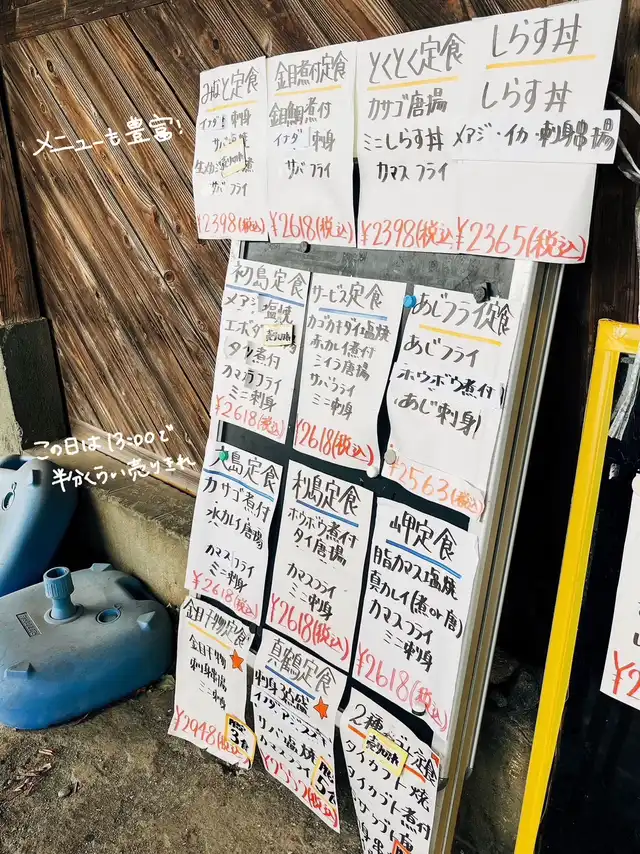 メニューも豊富！
この日は13:00で
半分くらい売り切れ
みなと定食
イナダ 刺身
サバ塩焼
サバフライ
¥2398(税込)
金目煮付定食
金目鯛煮付
イナダ 刺身
サバフライ
¥2618(税込)
とくとく定食
カサゴ唐揚
ミニしらす丼
カマスフライ
¥2398(税込)
しらす丼
しらす丼
メアジ・イカ・刺身串揚
¥2365(税込)
初島定食
メアジ塩焼
エボダイ
煮付
カマスフライ
ミニ刺身
¥2618(税込)
サービス定食
カゴカキダイ塩焼
赤カレイ煮付
ミイラ唐揚
サバフライ
ミニ刺身
¥2618(税込)
あじフライ定食
あじフライ
ホウボウ煮付
あじ刺身
¥2563(税込)
大島定食
カサゴ煮付
水カレイ唐揚
カマスフライ
ミニ刺身
¥2618(税込)
利島定食
ホウボウ煮付
タイ唐揚
カマスフライ
ミニ刺身
¥2618(税込)
山甲定食
脂カマス塩焼
真カレイ(煮or唐)
カマスフライ
ミニ刺身
¥2618(税込)
金目干物定食
金目干物
刺身串揚
ミニ刺身
¥2948(税込)
真鶴定食
刺身3点盛
サバ塩焼
(税込)
2種
定食
売り切れ
タイカブト焼
タイカブト煮付